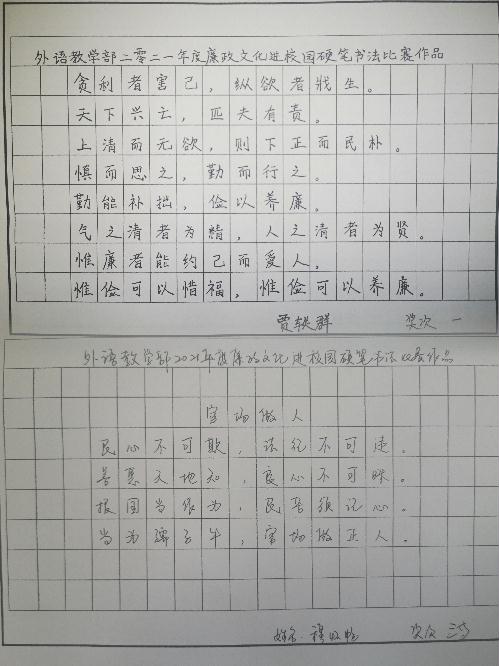 外语教学部二零二一年度廉政文化进校园硬笔书法比赛作品
贪利者害己，纵欲者戕生。
天下兴亡，匹夫有责。
上清而无欲，则下正而民朴。
惧而思之，勤而行之。
勤能补拙，俭以养廉。
气之清者为精，人之清者为贤。
惟廉者能约己而爱人，
惟俭可以惜福，惟俭可以养廉。
贾轶群 奖次 一
外语教学部2021年度廉政文化进校园硬笔书法比赛作品
官场做人
民心不可欺，法纪不可违。
善恶天地知，良心不可昧。
报国当作为，民苦须记心。
当为孺子牛，官场做正人。
姓名： 奖次 三